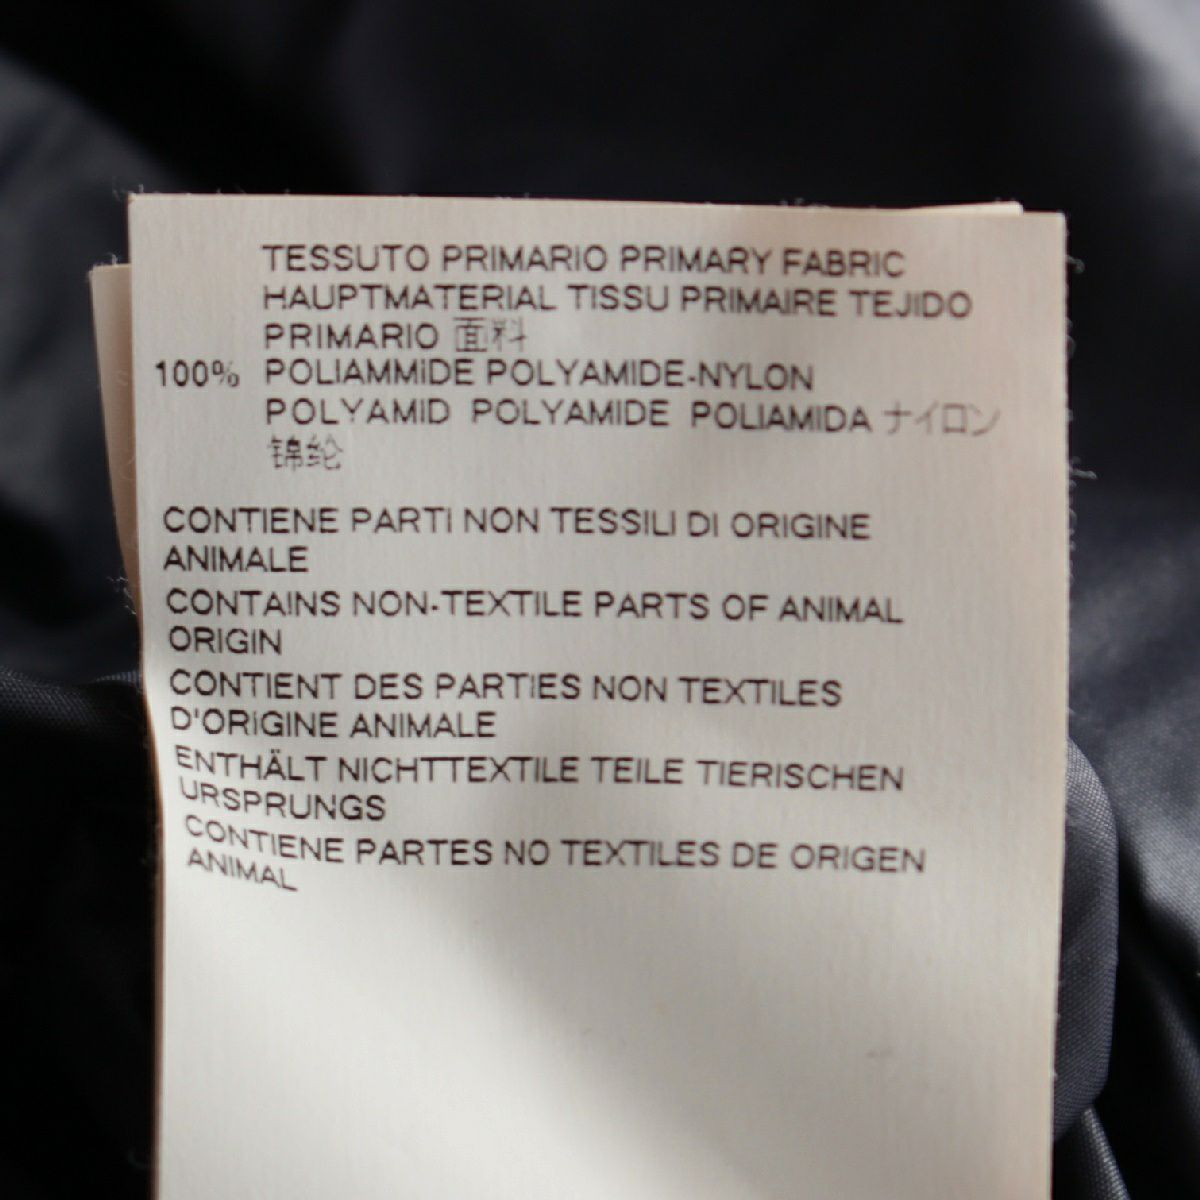 TESSUTO PRIMARIO PRIMARY FABRIC
HAUPTMATERIAL TISSU PRIMAIRE TEJIDO
PRIMARIO 面料
100% POLIAMMIDE POLYAMIDE-NYLON
POLYAMID POLYAMIDE POLIAMIDA ナイロン
锦纶
CONTIENE PARTI NON TESSILI DI ORIGINE
ANIMALE
CONTAINS NON-TEXTILE PARTS OF ANIMAL
ORIGIN
CONTIENT DES PARTIES NON TEXTILES
D'ORIGINE ANIMALE
ENTHÄLT NICHTTEXTILE TEILE TIERISCHEN
URSPRUNGS
CONTIENE PARTES NO TEXTILES DE ORIGEN
ANIMAL